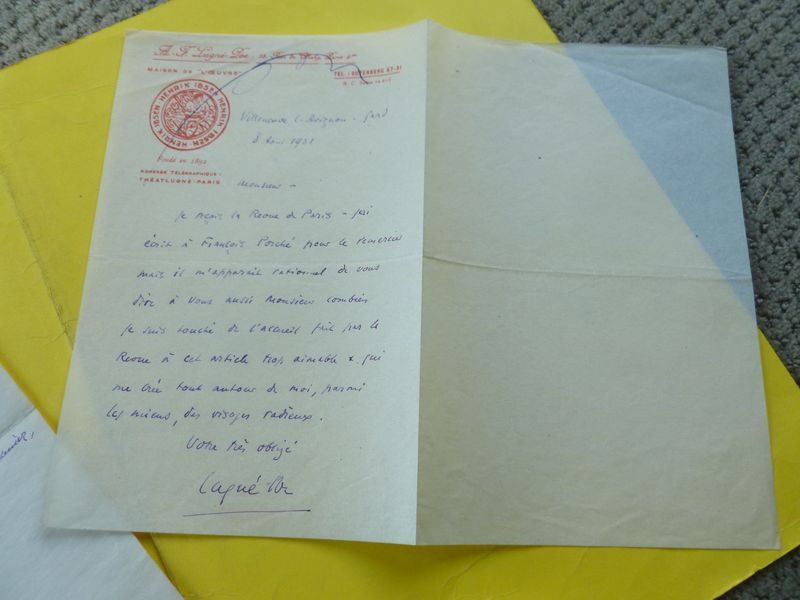 A. F. Lugné-Poe
MAISON DE "L'ŒUVRE"
TEL.: GUTENBERG 67-31
HENRIK IBSEN · HENRIK IBSEN · HENRIK IBSEN
Fondé en 1892
ADRESSE TÉLÉGRAPHIQUE :
THÉATLUGNÉ-PARIS
Villeneuve l. Avignon - Gard
8 1931
Monsieur -
Je reçois la Revue de Paris - j'ai
écrit à François Porché pour le remercier
mais il m'apparait rationnel de vous
dire à vous aussi Monsieur combien
je suis touché de l'accueil fait par la
Revue à cet article trop aimable & qui
me crée tout autour de moi, parmi
les miens, des visages radieux.
Votre très obligé
Lugné Poe